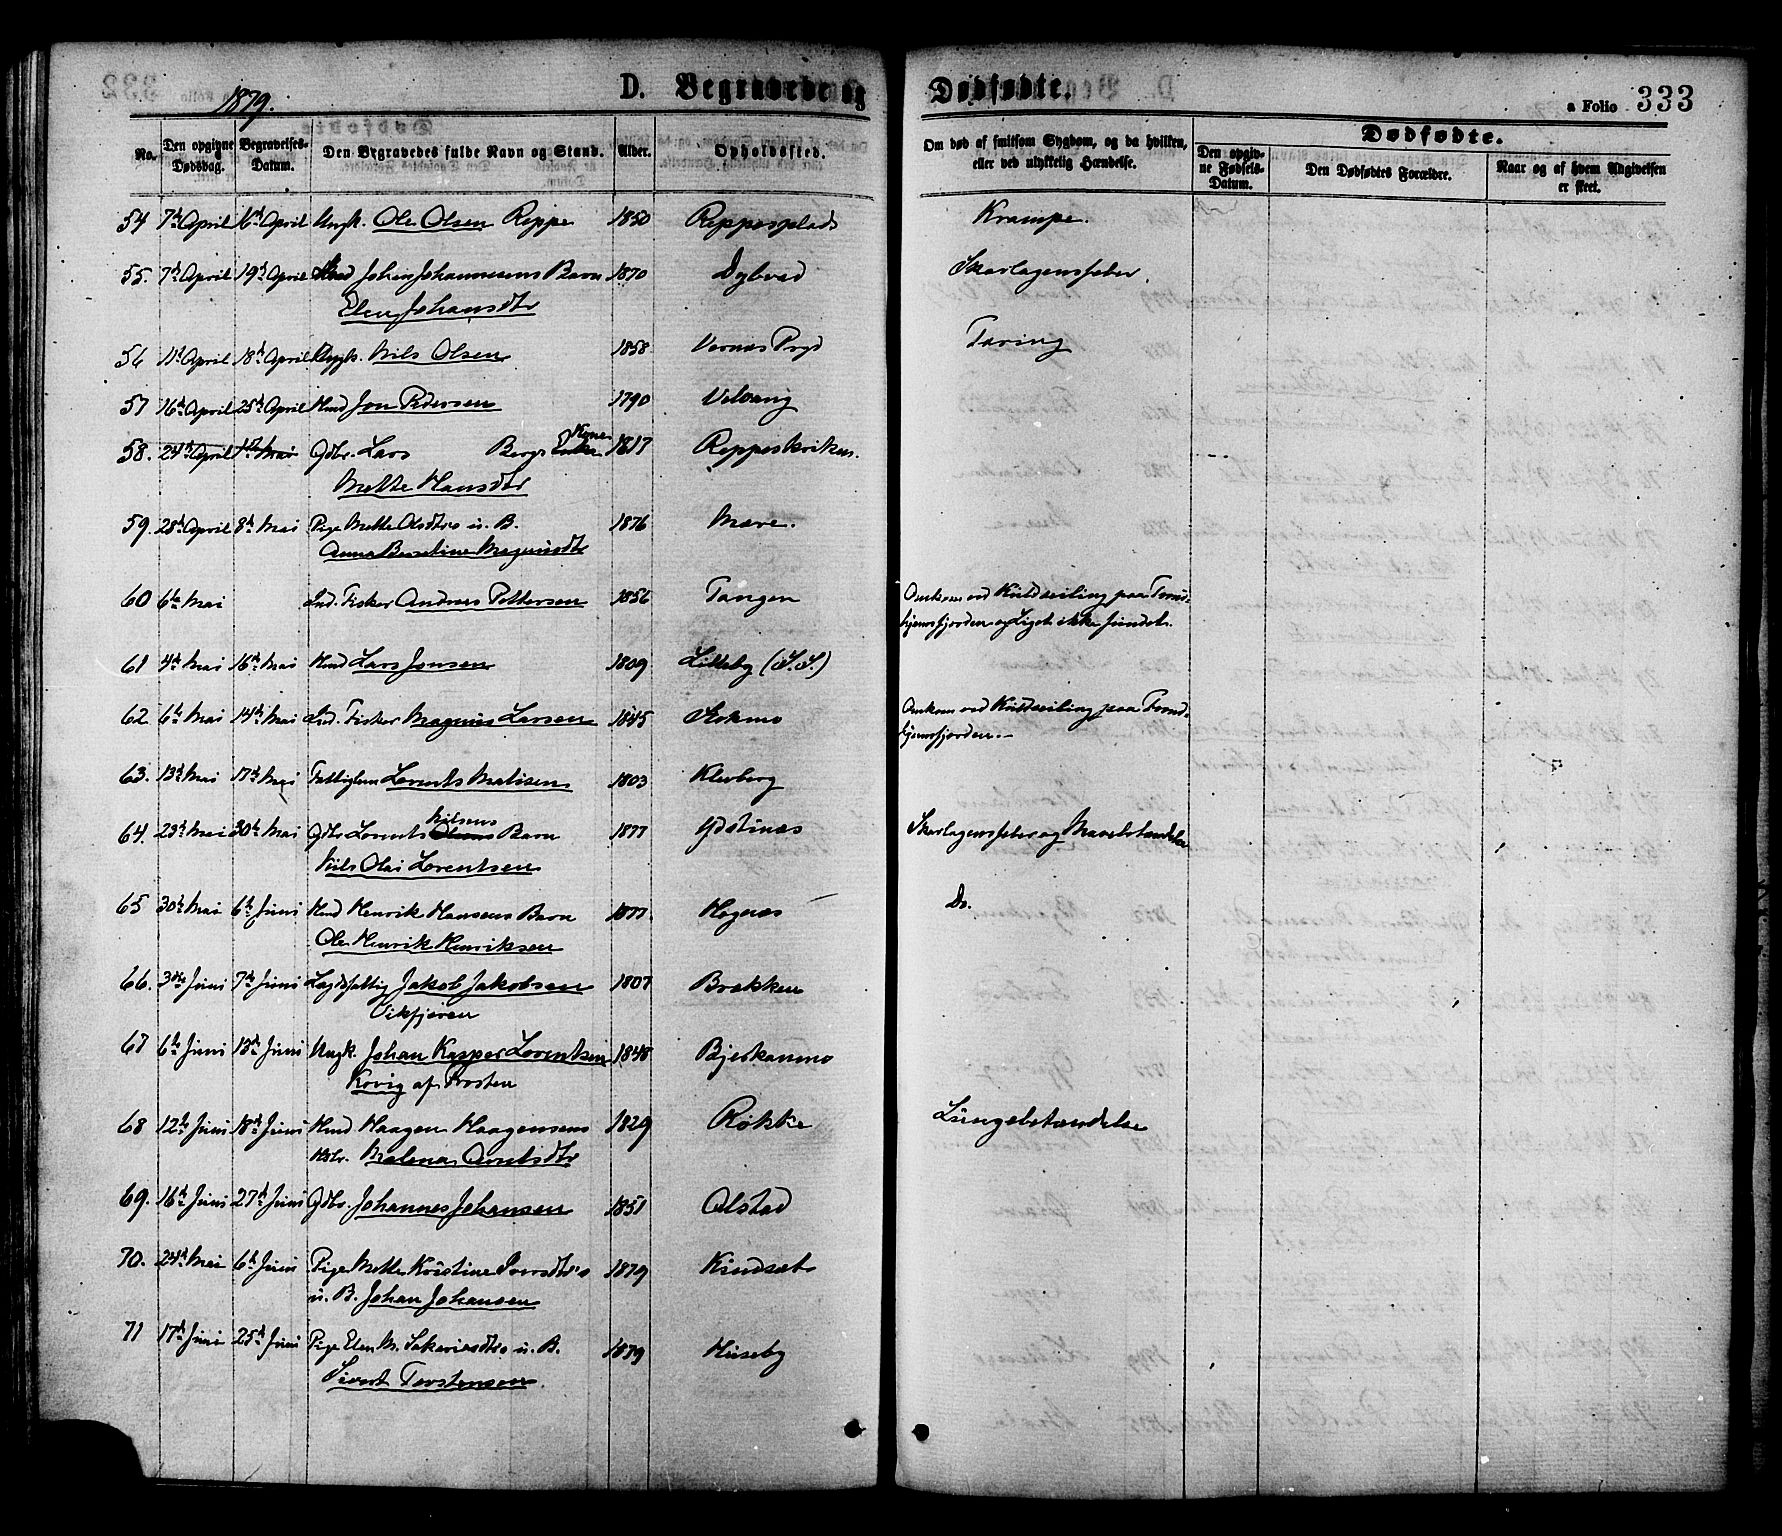 1879.
D. Begravede og Dødfødte.
a Folio 333
No. Den opgivne Dødsdag. Begravelses-Datum. Den Begravedes fulde Navn og Stand. Alder. Opholdssted. Om død af smitsom Sygdom, og da hvilken, eller ved ulykkelig Hændelse. Dødfødte.
Den opgivne Fødsels-Datum. Den Dødfødtes Forældre. Naar og af hvem Angivelsen er skeet.
54 7de April 16de April Ungk. Ole Olsen Reppe 1850 Reppesplads Krampe.
55. 7de April 19de April Johan Johannesens Barn 1870 Dybvad Skarlagensfeber.
Elen Johansdtr
56 11te April 18de April Nils Olsen 1858 Vernæs Prgd Tæring
57 16de April 25de April Hmd Jon Pedersen 1790 Velvang
58. 24de April 1ste Mai Gdbr. Lars Bergs Kone 1817 Reppeskriken.
Mette Hansdtr
59. 28de April 8de Mai Pige Mette Olsdtrs u. B. 1876 Mære.
Anna Berntine Magnusdtr
60 6te Mai Ind. Fisker Andreas Pettersen 1856 Tangen Omkom ved Kuldseiling paa Trond-
hjemsfjorden og Liget ikke fundet.
61 4de Mai 16de Mai Hmd Lars Jonsen 1809 Lilleby (S.S.)
62. 6te Mai 14de Mai Ind. Fisker Magnus Larsen 1845 Stokmo Omkom ved Kuldseiling paa Trond-
hjemsfjorden.
63. 13de Mai 17de Mai Fattiglem Lorents Matisen 1803 Klevberg
64. 23de Mai 30te Mai Gdbr Lorents Nilsens Barn 1877 Ydstines Skarlagensfeber og Mavebetændelse
Nils Olai Lorentsen
65 30te Mai 6te Juni Hmd Henrik Hansens Barn 1877. Hognes Do.
Ole Henrik Henriksen
66. 3die Juni 7de Juni Lægdsfattig Jakob Jakobsen 1807 Brækken
Vikfjæren
67 6te Juni 13de Juni Ungk. Johan Kasper Lorentsen 1848 Bjerkanmo
Kovig af Frosten
68 12te Juni 18de Juni Hmd Haagen Haagensens 1829 Røkke Lungebetændelse
Malena Arntsdtr
69. 16de Juni 27de Juni Gdbr. Johannes Johansen 1851 Alstad
70. 24de Mai 6te Juni Pige Mette Kristine Iversdtr's 1879 Kindsæt
u. B. Johan Johansen
71 17de Juni 25de Juni Pige Elen M. Sakariasdtrs u. B. 1879 Huseby
Sivert Torstensen.